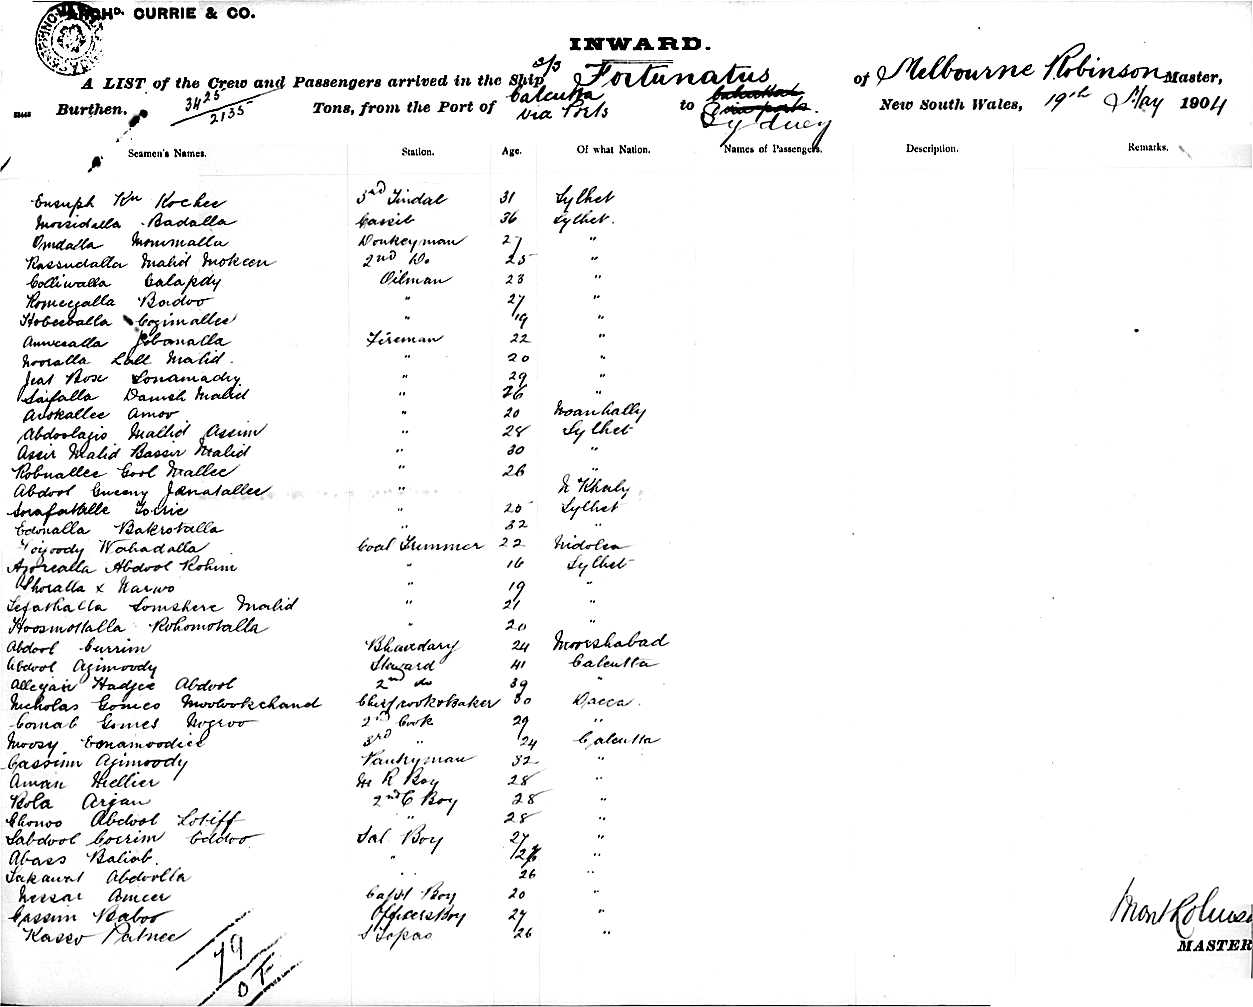 ARCHD. CURRIE & CO.
INWARD.
A LIST of the Crew and Passengers arrived in the Ship S/S Fortunatus of Melbourne Robinson Master,
Burthen, 3425 / 2135 Tons, from the Port of Calcutta via Ports to Sydney New South Wales, 19th May 1904
Seamen's Names. Station. Age. Of what Nation. Names of Passengers. Description. Remarks.
Eusuph Kn Kochee 3rd Tindal 31 Sylhet
Morsidalla Badalla Cassib 36 Sylhet.
Omdalla Mommalla Donkeyman 27 "
Rassudalla Malid Mokeen 2nd Do 25 "
Colliwalla Calapdy Oilman 23 "
Romezalla Badoo " 27 "
Hobeballa Cozimallee " 19 "
Annvesalla Jobanalla Fireman 22 "
Nooralla Lall Malid. " 20 "
Jeat Box Sonamady " 29 "
Saifalla Danish Malid " 26 "
Arokallee Amov " 20 Noanhally
Abdoolazis Mallid Assim " 28 Sylhet
Assir Malid Bassir Malid " 30 "
Robnallee Gool Mallee " 26 "
Abdool Guneny Janatallee " N Khaly
Torrie " 20 Sylhet
Edonalla Bakrotalla " 32 "
Wahadalla Coal Trimmer 22 Nidolea
Azorealla Abdool Rohim " 16 Sylhet
Shoralla x Narwo " 19 "
Sefathalla Somshere Malid " 21 "
Hoosmotalla Rohomotalla " 20 "
Abdool Currim Bhandary 24 Moorshabad
Abdool Azimoody Steward 41 Calcutta
Allejan Hadjee Abdool 2nd do 39 "
Nicholas Gomes Moolookchand Chief cook & baker 30 Dacca.
Comab Gomes Negroo 2nd Cook 29 "
Moosy Eonamoodiee 3rd " 24 Calcutta
Cassim Azimoody Pantryman 32 "
Aman Hellier M R Boy 28 "
Bola Arjan 2nd C Boy 28 "
Chonoo Abdool Lotiff " 28 "
Sabdool Corrim Eddoo Sal Boy 27 "
Abass Baliab. " "
Sakawat Abdoolla " 26 "
Nessar Ameer Capt Boy 20 "
Cassim Baboo Officers Boy 27 "
Kasso Patnee Topas 26 "
79
OF
Robinson
MASTER